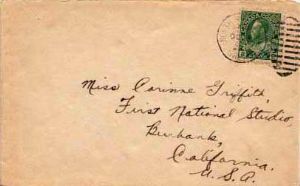 Miss Corinne Griffith,
First National Studio,
Burbank,
California.
U.S.A.